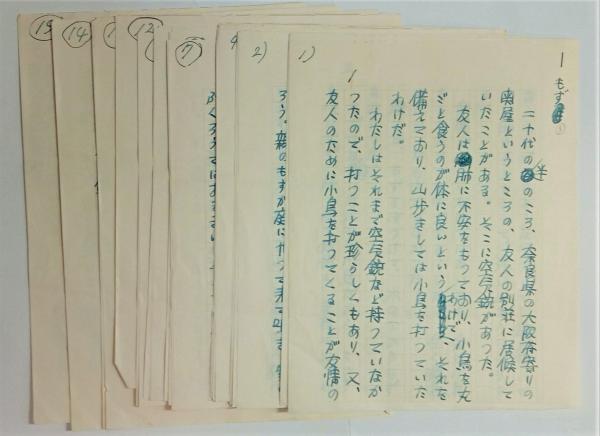 1
もず
1)
1
二十代の半のころ、奈良県の大阪府寄りの
関屋というところの、友人の別荘に居候して
いたことがある。そこに空気銃があった。
友人は肺に不安をもつており、小鳥を丸
ごと食うのが体に良いというわけで、それを
備えており、山歩きしては小鳥を打つていた
わけだ。
わたしはそれまで空気銃など持つていなか
つたので、打つことが珍らしくもあり、又、
友人のために小鳥を打つてくることが友情の
2)
ろう。森のもずが庭にやつて来て
7
12
14